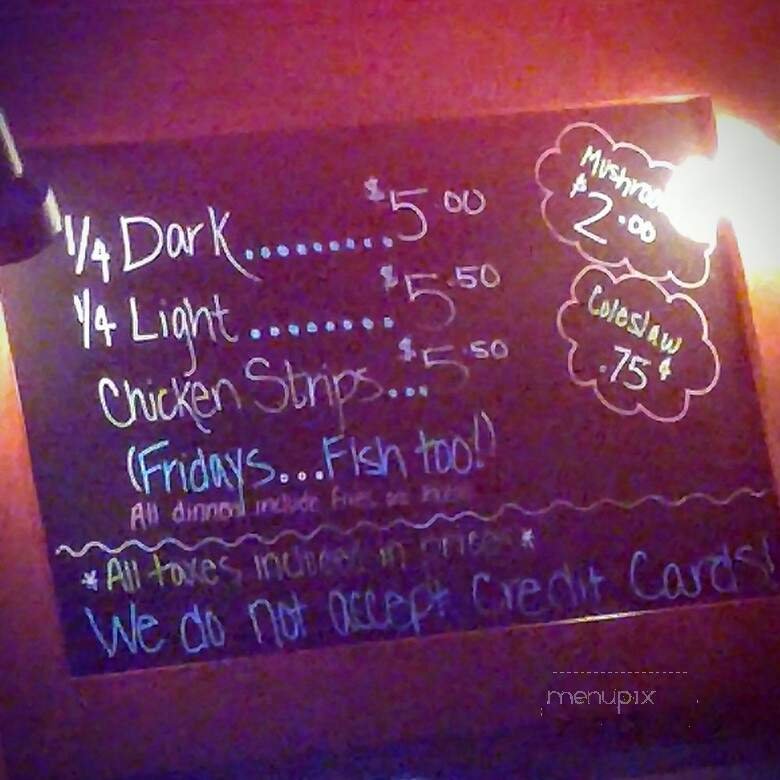 1/4 Dark.......... $5.00
1/4 Light......... $5.50
Chicken Strips... $5.50
(Fridays...Fish too!)
All dinners include fries
*All taxes included in prices*
We do not accept Credit Cards!
$2.00
Coleslaw
.75¢
menupix